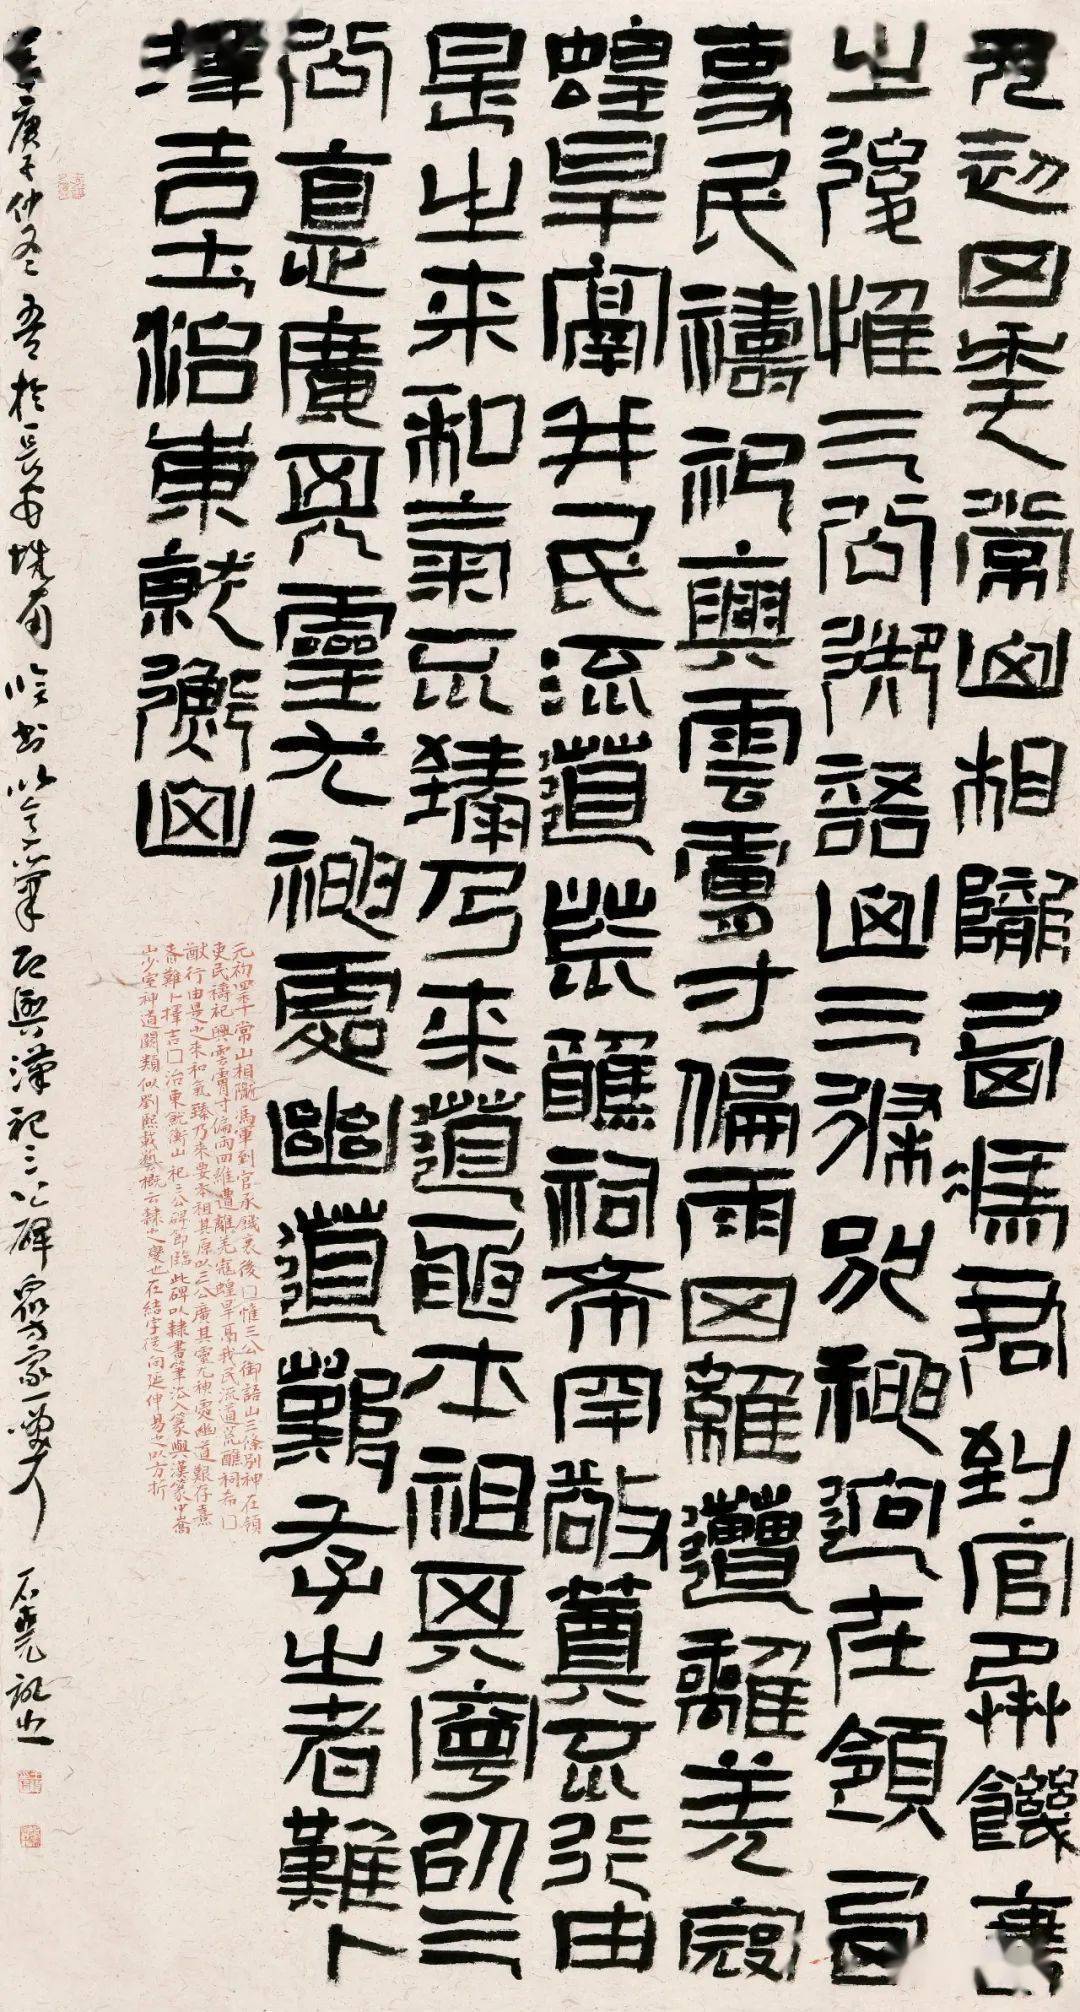 元初四年常山相隴西馮君到官承饑衰
之後惟三公御語山三條別神迥在領西
吏民禱祀興雲膚寸偏雨四維遭離羌寇
蝗旱鬲并民流道荒醮祠希罕敬奠不行由
是之來和氣不臻乃來道要本祖其原以三
公惪廣其靈尤神處幽道艱存之者難卜
擇吉土治東就衡山
元初四年常山相隴馮軍到官承饑衰後□惟三公御語山三條別神在領
吏民禱祀興雲膚寸偏雨四維遭離羌寇蝗旱鬲我民流道荒醮祠希□
猷行由是之來和氣臻乃來要本祖其原以三公廣其靈尤神處幽道艱存熹
者難卜擇吉□治東就衡山祀三公碑節臨此碑以隸書筆法入篆與漢篆中嵩
山少室神道闕類似劉熙載藝概云隸之變也在結字從向延伸易之以方折
庚子仲冬吾於長安城南臨書以今筆漢祀三公碑方家一石堯記之